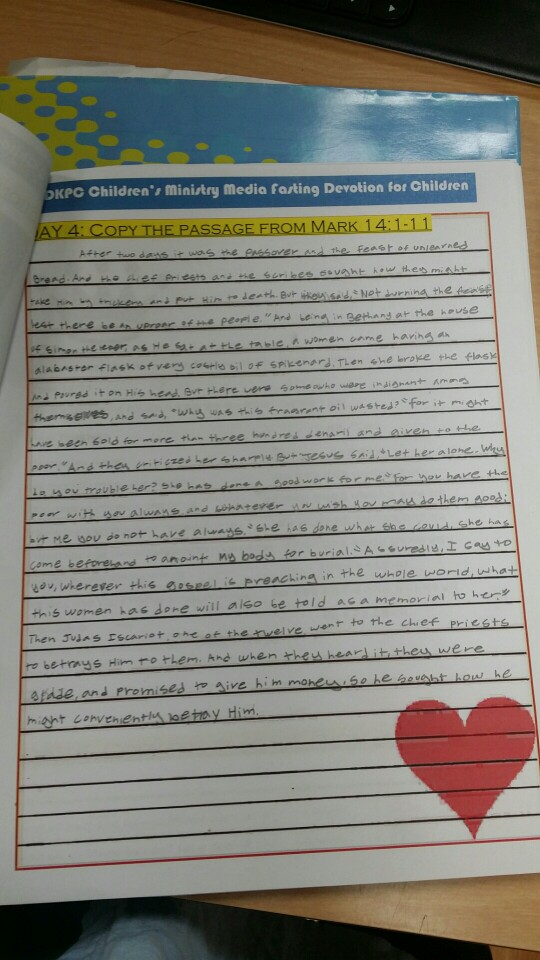 DKPC Children's Ministry Media Fasting Devotion for Children
AY 4: COPY THE PASSAGE FROM MARK 14:1-11
After two days it was the Passover and the feast of unleavened
Bread. And the chief Priests and the scribes sought how they might
take Him by trickery and put Him to death. But they said, "Not durning the feast,
lest there be an uproar of the people." And being in Bethany at the house
of Simon the leper, as He sat at the table, a women came having an
alabaster flask of very costly oil of spikenard. Then she broke the flask
and Poured it on His head. But there were some who were indignant among
themselves, and said, "Why was this fragrant oil wasted? "For it might
have been sold for more than three hundred denarii and given to the
poor." And they criticzed her sharply. But Jesus said, "Let her alone. Why
do you trouble her? She has done a good work for me. "For you have the
poor with you always, and whatever you wish you may do them good;
but Me you do not have always. "She has done what she could. She has
come beforehand to anoint My body for burial. "Assuredly, I say to
you, wherever this gospel is preaching in the whole world, what
this women has done will also be told as a memorial to her."
Then Judas Iscariot, one of the twelve, went to the chief priests
to betrays Him to them. And when they heard it, they were
and promised to give him money. So he sought how he
might conveniently betray Him.